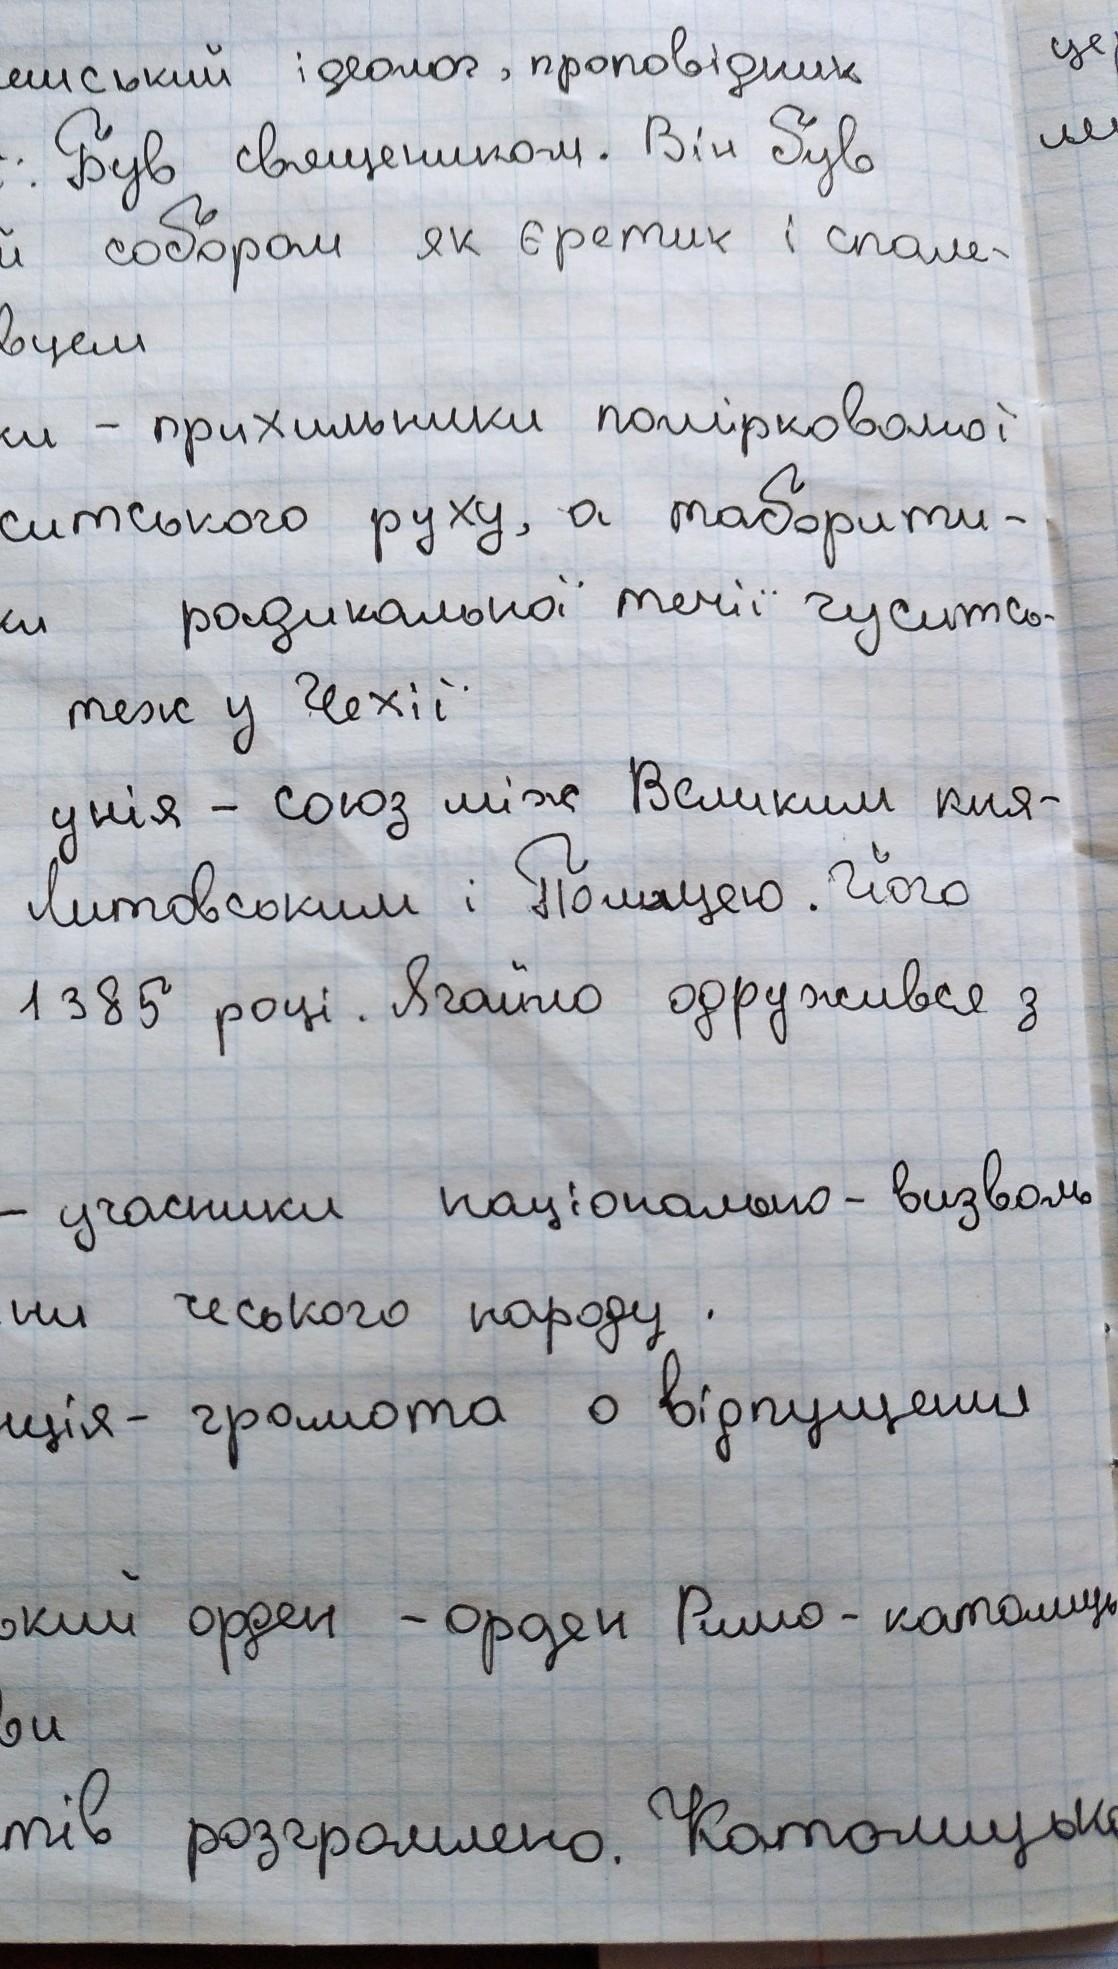 ешський ідеолог, проповідник
Був священиком. Він був
й собором як єретик і спале-
вцем
ки - прихильники поміркованої
ситського руху, а таборити-
ки радикальної течії гуситсь-
теж у Чехії
унія - союз між Великим кня-
Литовським і Польщею. Його
1385 році. Ягайло одружився з
- учасники національно-визволь
ни чеського народу.
нція - грамота о відпущення
ький орден - орден Римо-католиць
ви
тів розгромлено. Католицьк